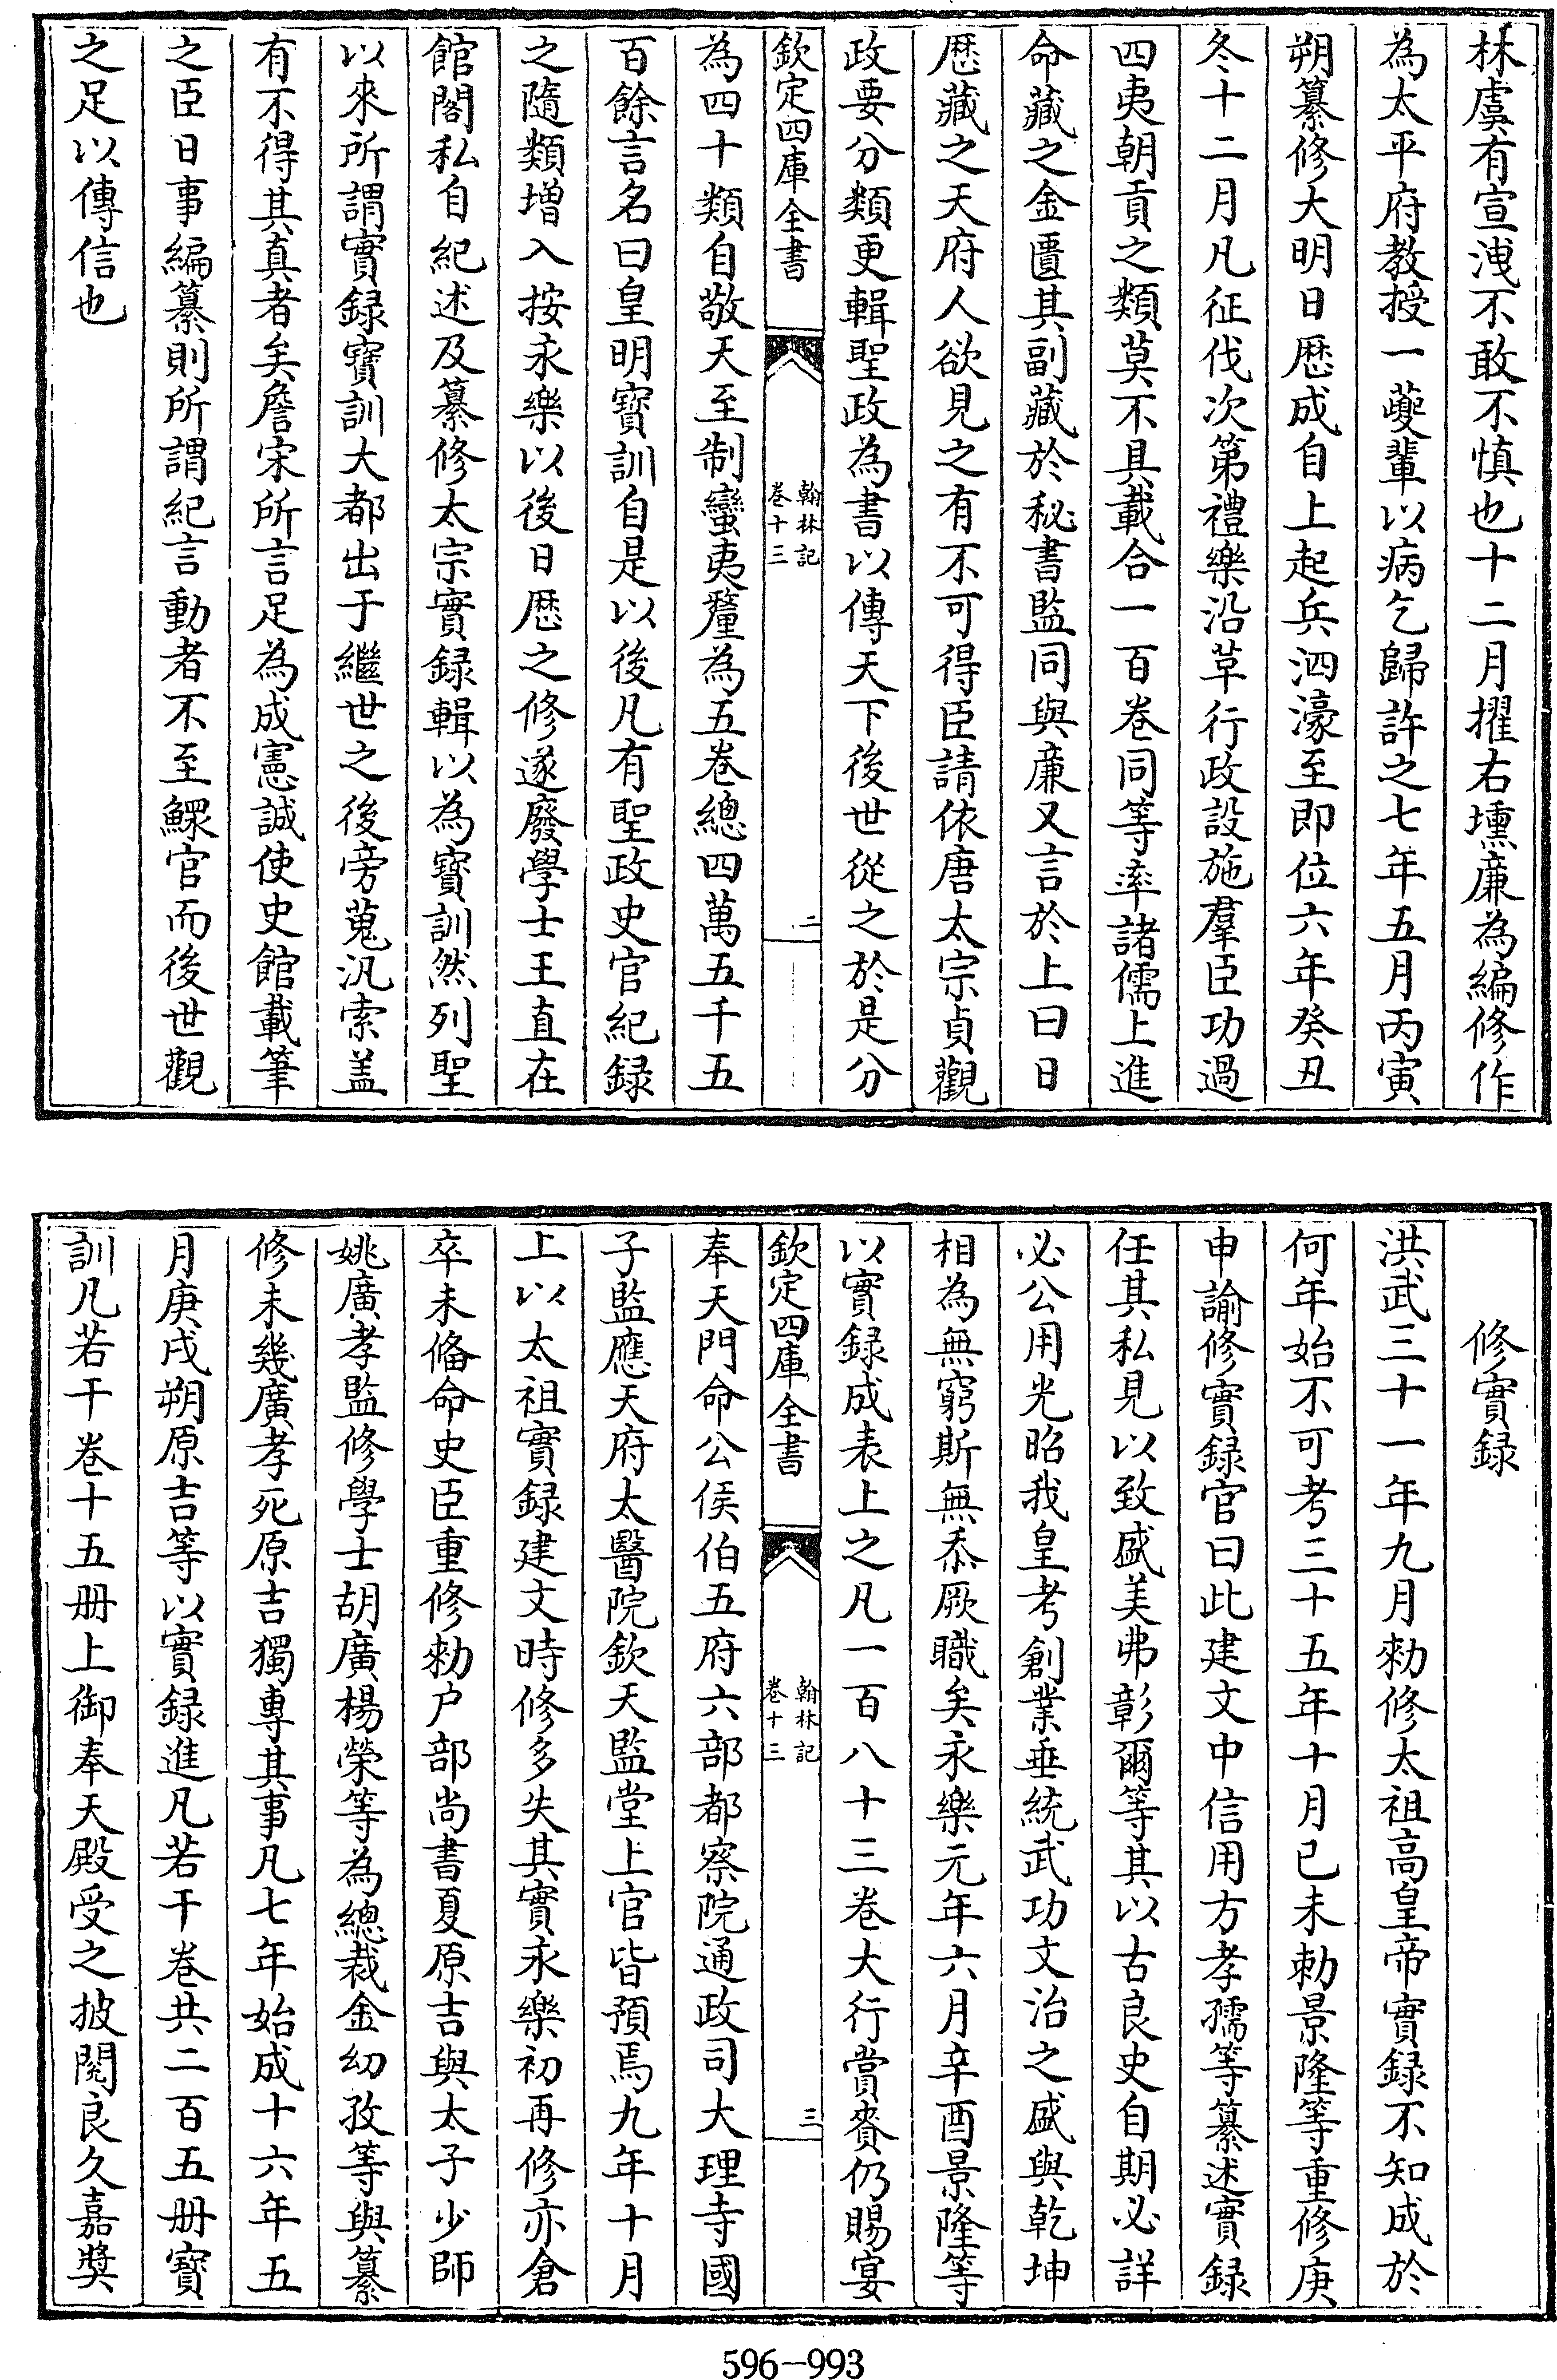 林虞有宣洩不敢不慎也十二月擢右壎廉為編修作
為太平府教授一夔輩以病乞歸許之七年五月丙寅
朔纂修大明日歴成自上起兵泗濠至即位六年癸丑
冬十二月凡征伐次第禮樂沿革行政設施羣臣功過
四夷朝貢之類莫不具載合一百卷同等率諸儒上進
命藏之金匱其副藏於秘書監同與廉又言於上曰日
歴藏之天府人欲見之有不可得臣請依唐太宗貞觀
政要分類更輯聖政為書以傳天下後世從之於是分
欽定四庫全書
翰林記
卷十三
二
為四十類自敬天至制蠻夷釐為五卷總四萬五千五
百餘言名曰皇明寳訓自是以後凡有聖政史官紀録
之隨類増入按永樂以後日歴之修遂廢學士王直在
館閣私自紀述及纂修太宗實録輯以為寳訓然列聖
以來所謂實録寳訓大都出于繼世之後旁蒐汎索盖
有不得其真者矣詹宋所言足為成憲誠使史館載筆
之臣日事編纂則所謂紀言動者不至鰥官而後世觀
之足以傳信也
修實録
洪武三十一年九月勑修太祖高皇帝實録不知成於
何年始不可考三十五年十月已未勅景隆等重修庚
申諭修實録官曰此建文中信用方孝孺等纂述實録
任其私見以致盛美弗彰爾等其以古良史自期必詳
必公用光昭我皇考創業垂統武功文治之盛與乾坤
相為無窮斯無忝厥職矣永樂元年六月辛酉景隆等
以實録成表上之凡一百八十三卷大行賞賚仍賜宴
欽定四庫全書
翰林記
卷十三
三
奉天門命公侯伯五府六部都察院通政司大理寺國
子監應天府太醫院欽天監堂上官皆預焉九年十月
上以太祖實録建文時修多失其實永樂初再修亦倉
卒未備命史臣重修勑户部尚書夏原吉與太子少師
姚廣孝監修學士胡廣楊榮等為總裁金幼孜等與纂
修未幾廣孝死原吉獨專其事凡七年始成十六年五
月庚戌朔原吉等以實録進凡若干卷共二百五册寳
訓凡若干卷十五册上御奉天殿受之披閱良久嘉奬
596-993